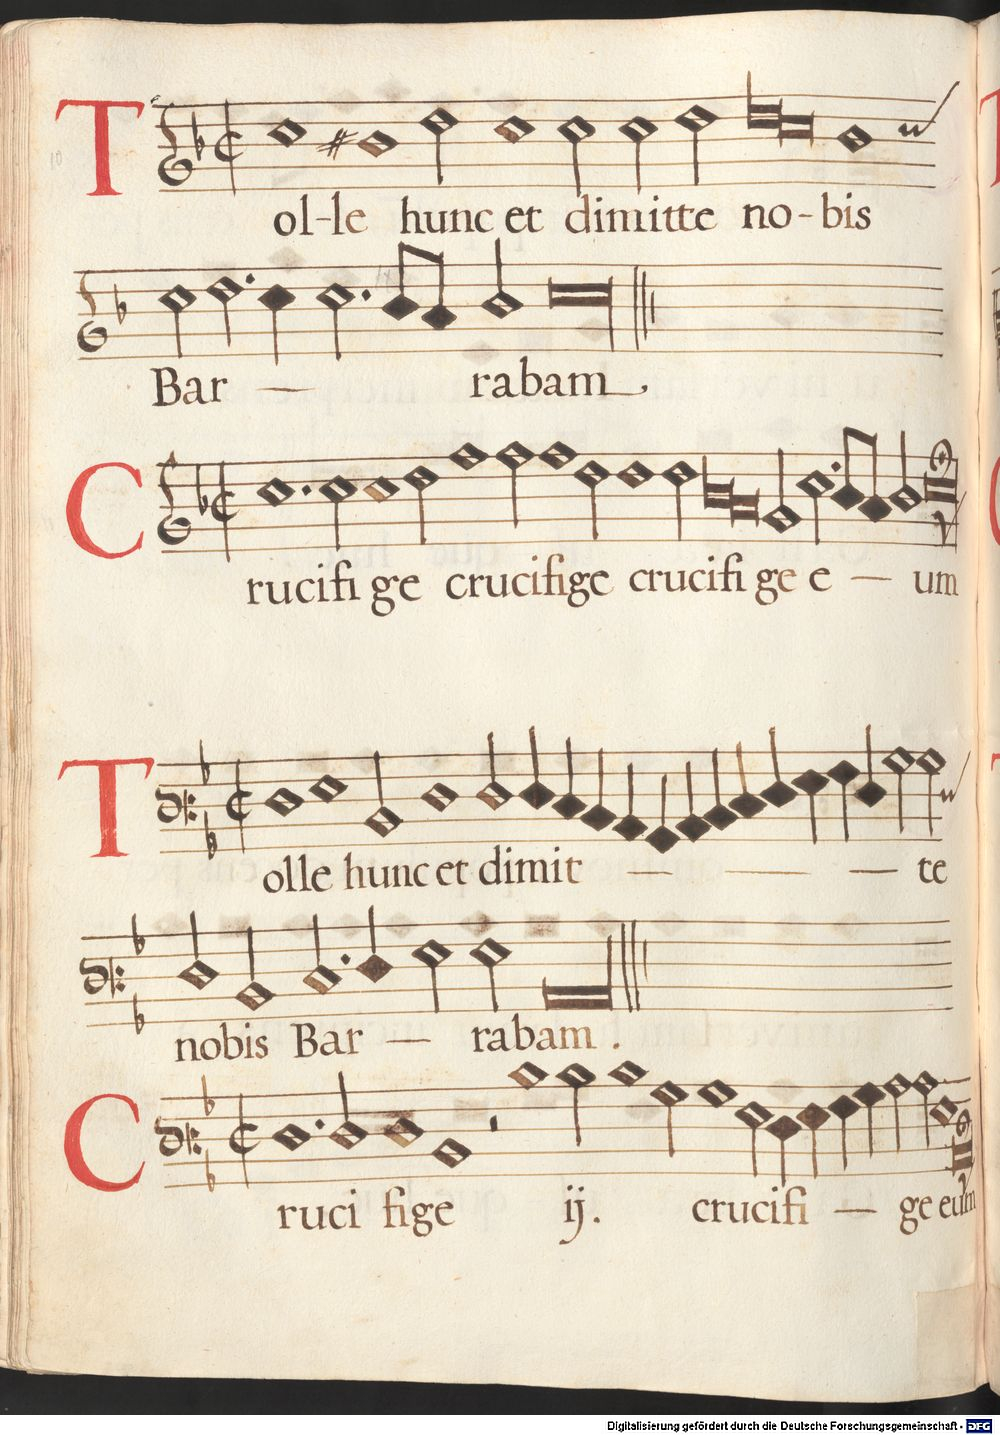 Tol-le hunc et dimitte no-bis
Bar — rabam.
Crucifi ge crucifige crucifi ge e — um
Tolle hunc et dimit — — — te
nobis Bar — rabam.
Cruci fige ij. crucifi — ge eum
Digitalisierung gefördert durch die Deutsche Forschungsgemeinschaft - DFG